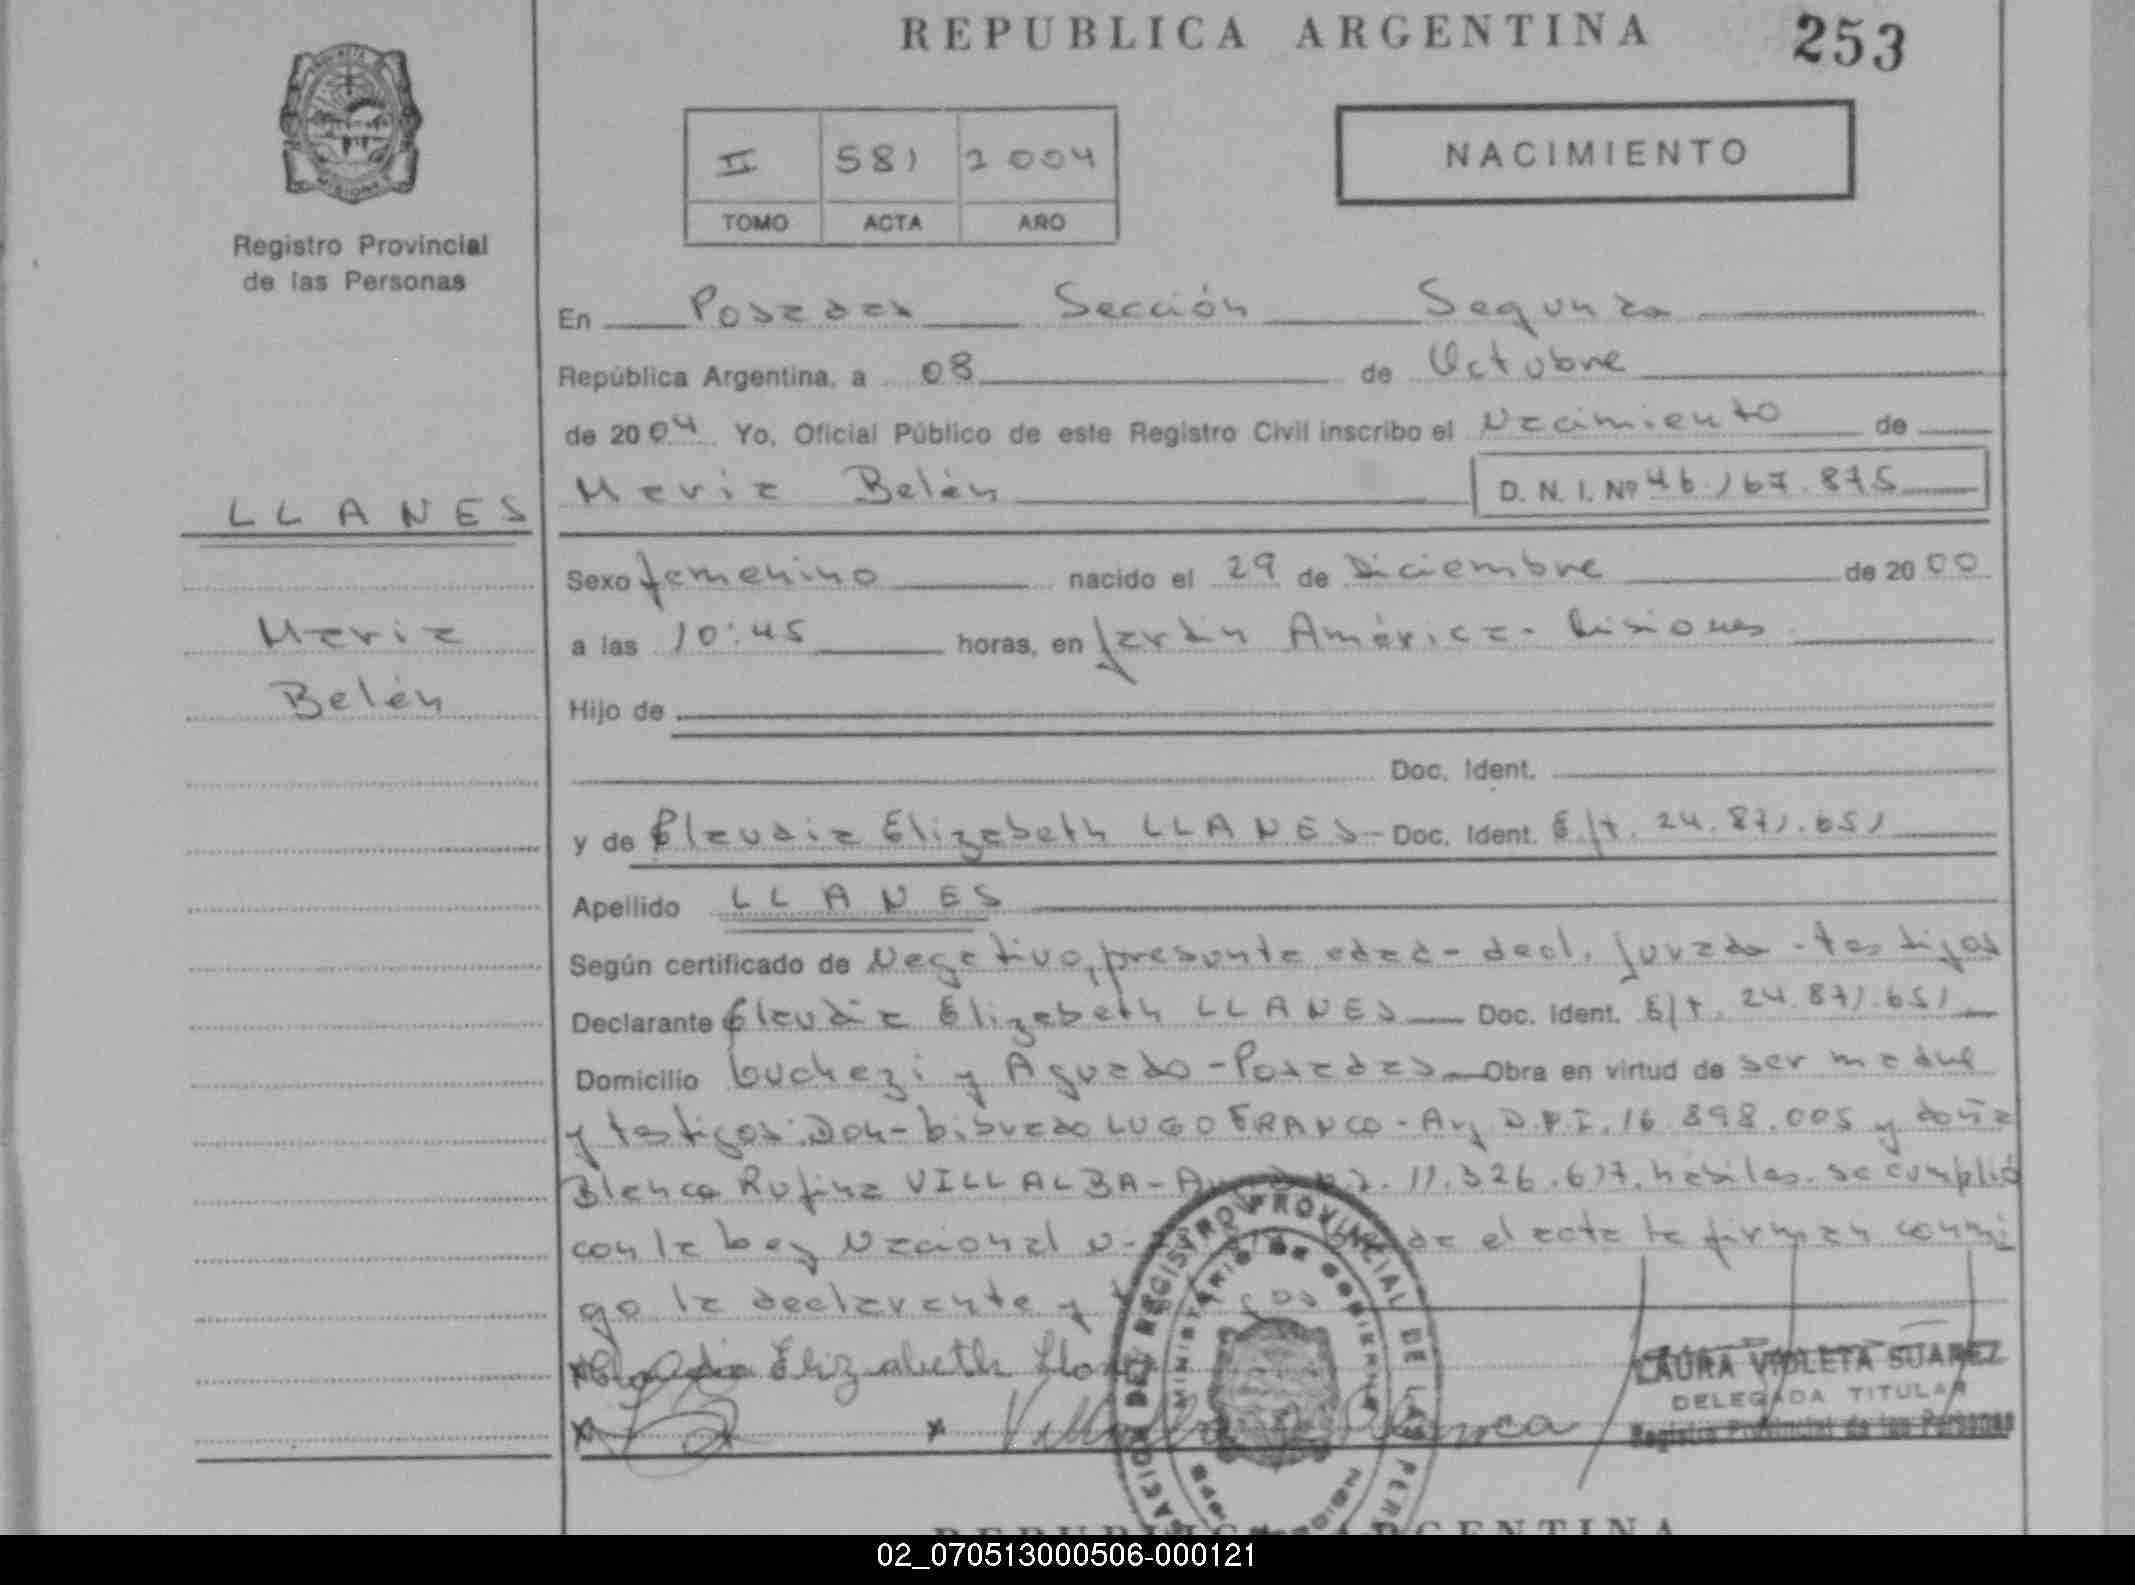 REPUBLICA ARGENTINA
253
II 581 2004
TOMO ACTA AÑO
NACIMIENTO
Registro Provincial
de las Personas
En Posadas Sección Segunda
República Argentina, a 08 de Octubre
de 2004 Yo, Oficial Público de este Registro Civil inscribo el Nacimiento de
María Belén D. N. I. Nº 46.167.875
LLANES
Sexo femenino nacido el 29 de Diciembre de 2000
María
a las 10:45 horas, en Jardín América - Misiones
Belén
Hijo de
Doc. Ident.
y de Claudia Elizabeth LLANES - Doc. Ident. 24.871.651
Apellido LLANES
Según certificado de Negativo, presunta edad - decl. jurada - testigos
Declarante Claudia Elizabeth LLANES Doc. Ident. 24.871.651
Domicilio y Aguado - Posadas Obra en virtud de ser madre
y testigos: Don LUGO FRANCO - Arg D.N.I. 16.898.005 y doña
Blanca Rufina VILLALBA - 11.326.617. hábiles. se cumplió
con la Ley Nacional el acta la firman conmi
go la declarante y
Claudia Elizabeth
Villalba Blanca
LAURA VIOLETA SUAREZ
DELEGADA TITULAR
Registro Provincial de las Personas
REGISTRO PROVINCIAL DE LAS
MINISTERIO DE GOBIERNO
REPUBLICA ARGENTINA
02_070513000506-000121